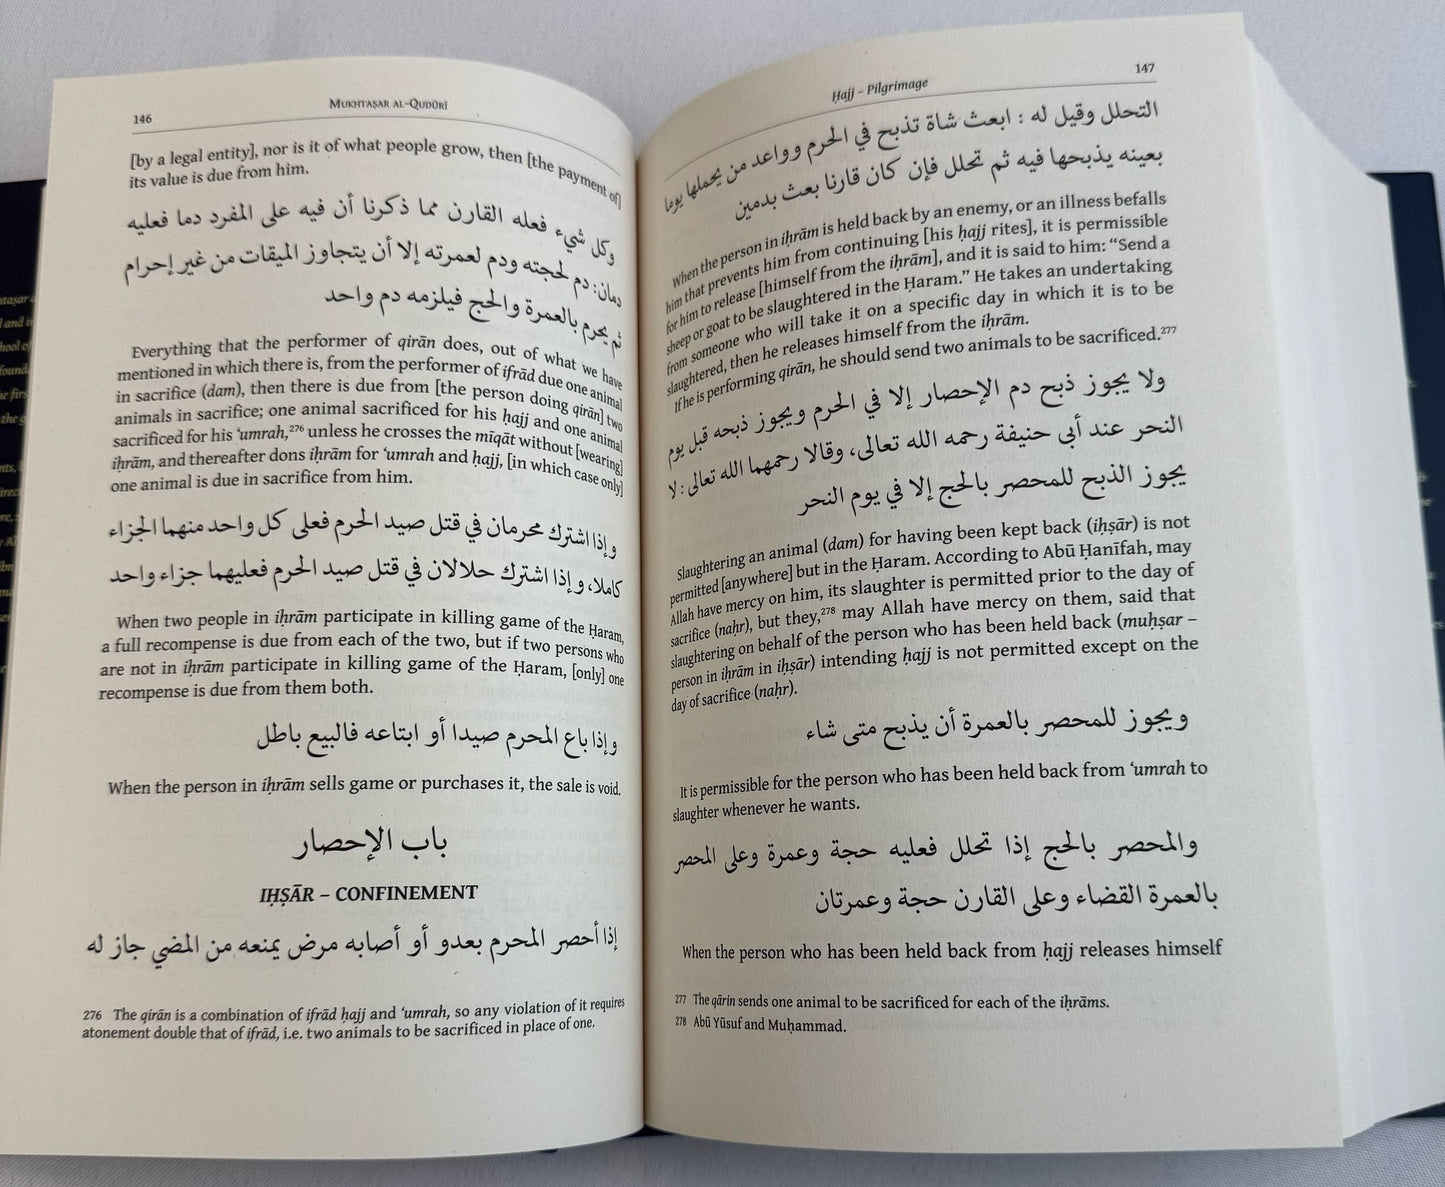 146
MUKHTAṢAR AL-QUDŪRĪ
[by a legal entity], nor is it of what people grow, then [the payment of]
its value is due from him.
وكل شيء فعله القارن مما ذكرنا أن فيه على المفرد دما فعليه
دمان: دم لحجته ودم لعمرته إلا أن يتجاوز الميقات من غير إحرام
ثم يحرم بالعمرة والحج فيلزمه دم واحد
Everything that the performer of qirān does, out of what we have
mentioned in which there is, from the performer of ifrād due one animal
in sacrifice (dam), then there is due from [the person doing qirān] two
animals in sacrifice; one animal sacrificed for his ḥajj and one animal
sacrificed for his ʿumrah,276 unless he crosses the mīqāt without [wearing]
iḥrām, and thereafter dons iḥrām for ʿumrah and ḥajj, [in which case only]
one animal is due in sacrifice from him.
وإذا اشترك محرمان في قتل صيد الحرم فعلى كل واحد منهما الجزاء
كاملا، وإذا اشترك حلالان في قتل صيد الحرم فعليهما جزاء واحد
When two people in iḥrām participate in killing game of the Ḥaram,
a full recompense is due from each of the two, but if two persons who
are not in iḥrām participate in killing game of the Ḥaram, [only] one
recompense is due from them both.
وإذا باع المحرم صيدا أو ابتاعه فالبيع باطل
When the person in iḥrām sells game or purchases it, the sale is void.
باب الإحصار
IḤṢĀR – CONFINEMENT
إذا أحصر المحرم بعدو أو أصابه مرض يمنعه من المضي جاز له
276 The qirān is a combination of ifrād ḥajj and ʿumrah, so any violation of it requires
atonement double that of ifrād, i.e. two animals to be sacrificed in place of one.
Ḥajj – Pilgrimage
147
التحلل وقيل له : ابعث شاة تذبح في الحرم وواعد من يحملها يوما
بعينه يذبحها فيه ثم تحلل فإن كان قارنا بعث بدمين
When the person in iḥrām is held back by an enemy, or an illness befalls
him that prevents him from continuing [his ḥajj rites], it is permissible
for him to release [himself from the iḥrām], and it is said to him: “Send a
sheep or goat to be slaughtered in the Ḥaram.” He takes an undertaking
from someone who will take it on a specific day in which it is to be
slaughtered, then he releases himself from the iḥrām.
If he is performing qirān, he should send two animals to be sacrificed.277
ولا يجوز ذبح دم الإحصار إلا في الحرم ويجوز ذبحه قبل يوم
النحر عند أبي حنيفة رحمه الله تعالى، وقالا رحمهما الله تعالى: لا
يجوز الذبح للمحصر بالحج إلا في يوم النحر
Slaughtering an animal (dam) for having been kept back (iḥṣār) is not
permitted [anywhere] but in the Ḥaram. According to Abū Ḥanīfah, may
Allah have mercy on him, its slaughter is permitted prior to the day of
sacrifice (naḥr), but they,278 may Allah have mercy on them, said that
slaughtering on behalf of the person who has been held back (muḥṣar –
person in iḥrām in iḥṣār) intending ḥajj is not permitted except on the
day of sacrifice (naḥr).
ويجوز للمحصر بالعمرة أن يذبح متى شاء
It is permissible for the person who has been held back from ʿumrah to
slaughter whenever he wants.
والمحصر بالحج إذا تحلل فعليه حجة وعمرة وعلى المحصر
بالعمرة القضاء وعلى القارن حجة وعمرتان
When the person who has been held back from ḥajj releases himself
277 The qārin sends one animal to be sacrificed for each of the iḥrāms.
278 Abū Yūsuf and Muḥammad.